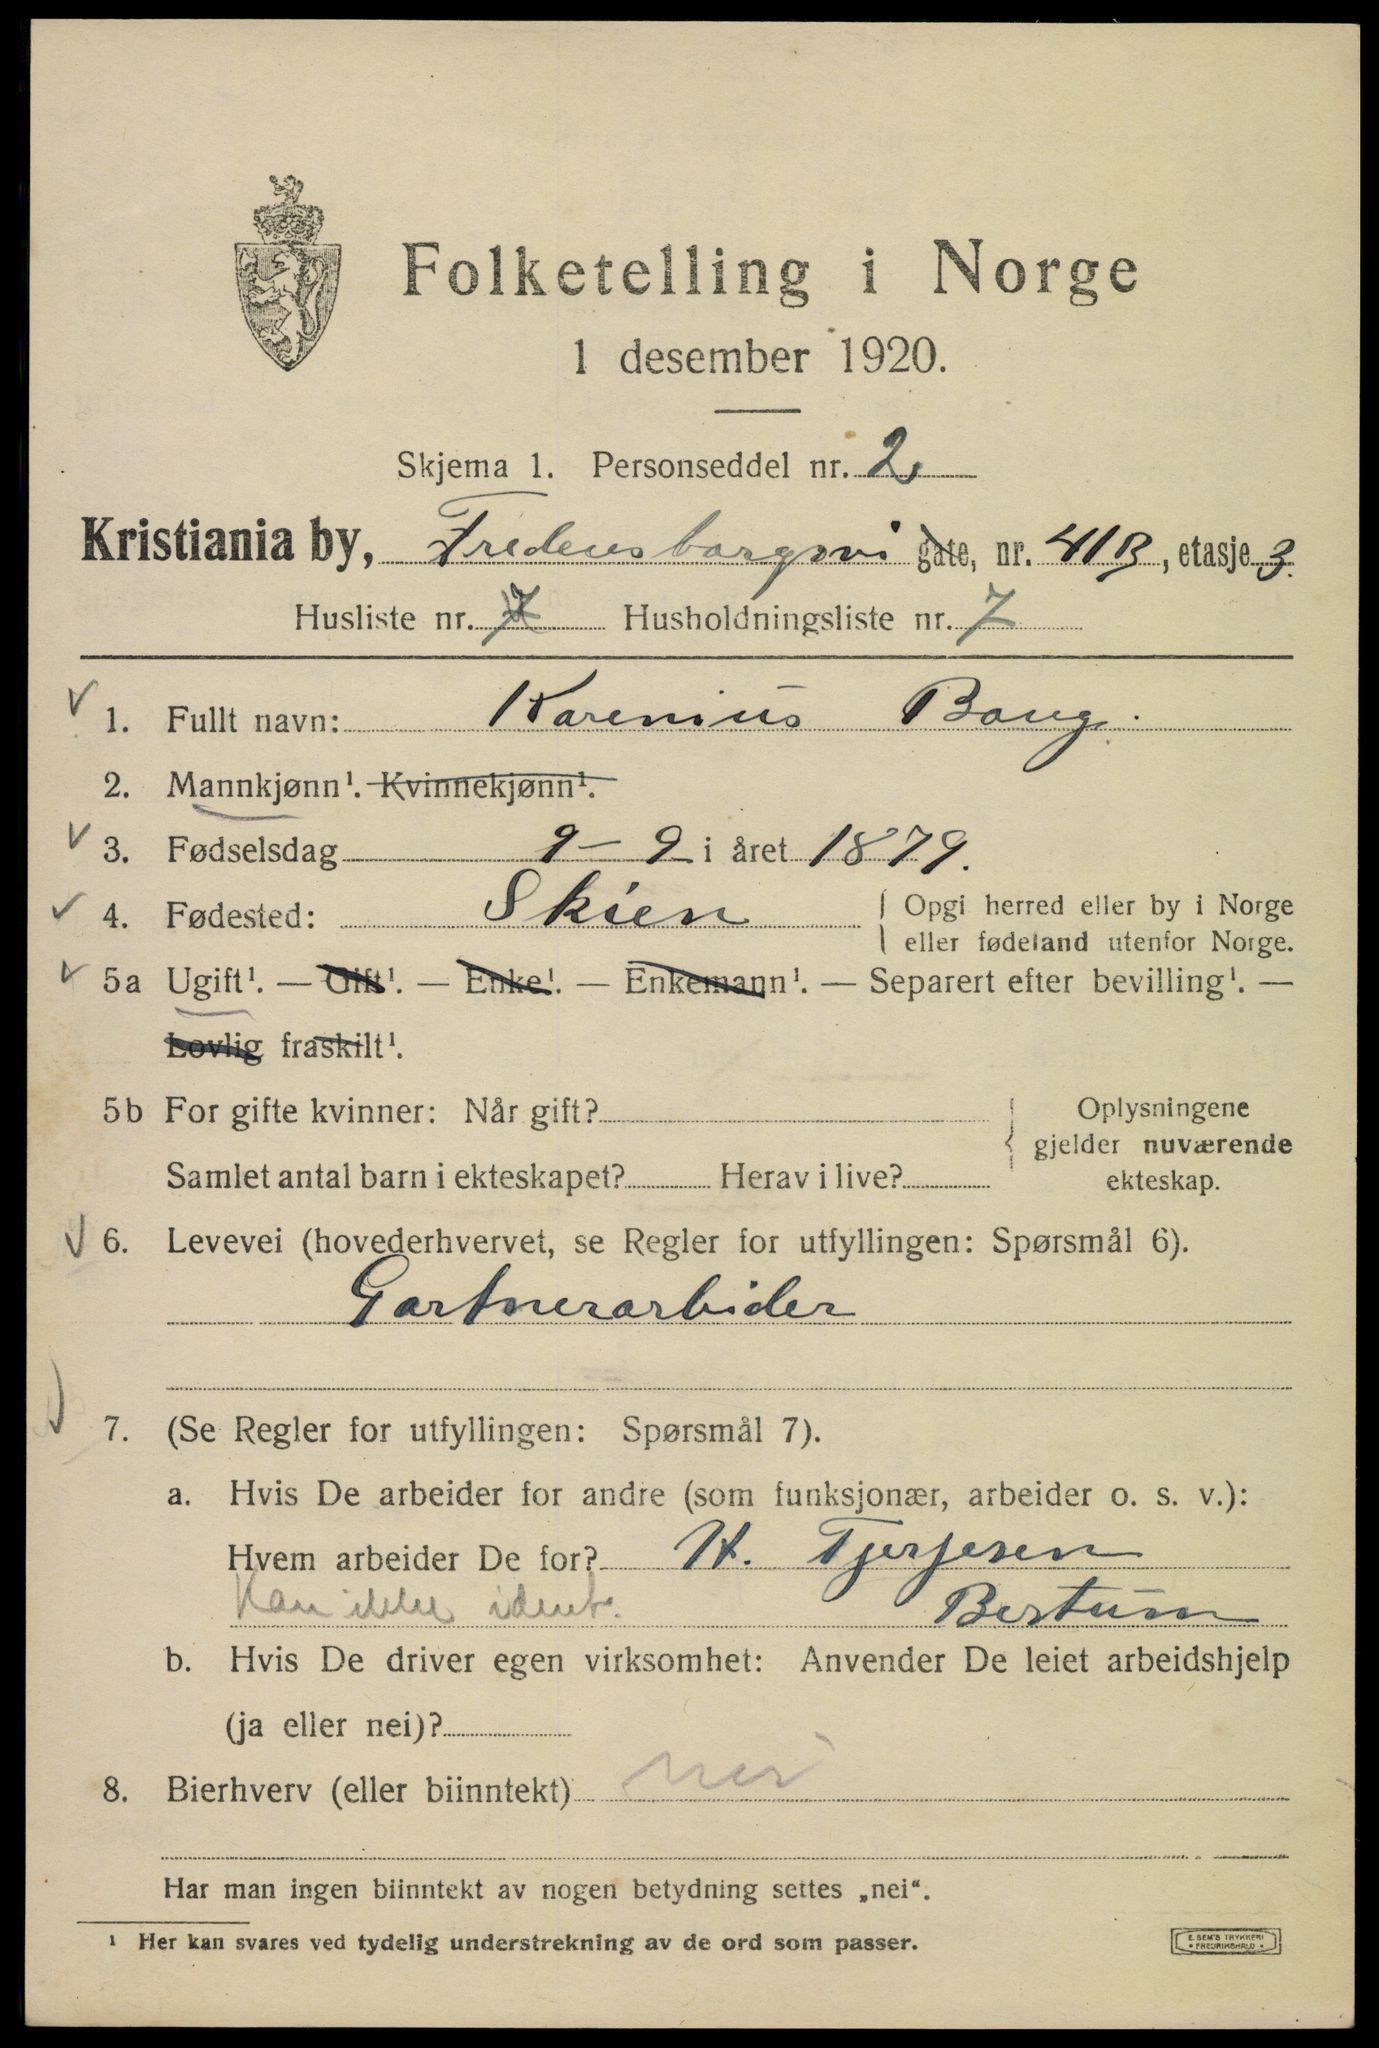 Folketelling i Norge
1 desember 1920.
Skjema 1. Personseddel nr. 2
Kristiania by, Fredensborgsvi gate, nr. 41B, etasje 3.
Husliste nr. 7 Husholdningsliste nr. 7
1. Fullt navn: Karenius Baug.
2. Mannkjønn¹. Kvinnekjønn¹.
3. Fødselsdag 9 – 9 i året 1879.
4. Fødested: Skien { Opgi herred eller by i Norge
eller fødeland utenfor Norge.
5a Ugift¹. — Gift¹. — Enke¹. — Enkemann¹. — Separert efter bevilling¹. —
Lovlig fraskilt¹.
5b For gifte kvinner: Når gift? { Oplysningene
gjelder nuværende
Samlet antal barn i ekteskapet? Herav i live? ekteskap.
6. Levevei (hovederhvervet, se Regler for utfyllingen: Spørsmål 6).
Gartnerarbider
7. (Se Regler for utfyllingen: Spørsmål 7).
a. Hvis De arbeider for andre (som funksjonær, arbeider o. s. v.):
Hvem arbeider De for? H. Tjerjesen
Kan ikke ident. Bestum
b. Hvis De driver egen virksomhet: Anvender De leiet arbeidshjelp
(ja eller nei)?
8. Bierhverv (eller biinntekt) nei
Har man ingen biinntekt av nogen betydning settes „nei“.
¹ Her kan svares ved tydelig understrekning av de ord som passer.
E. SEM'S TRYKKERI
• FREDRIKSHALD •